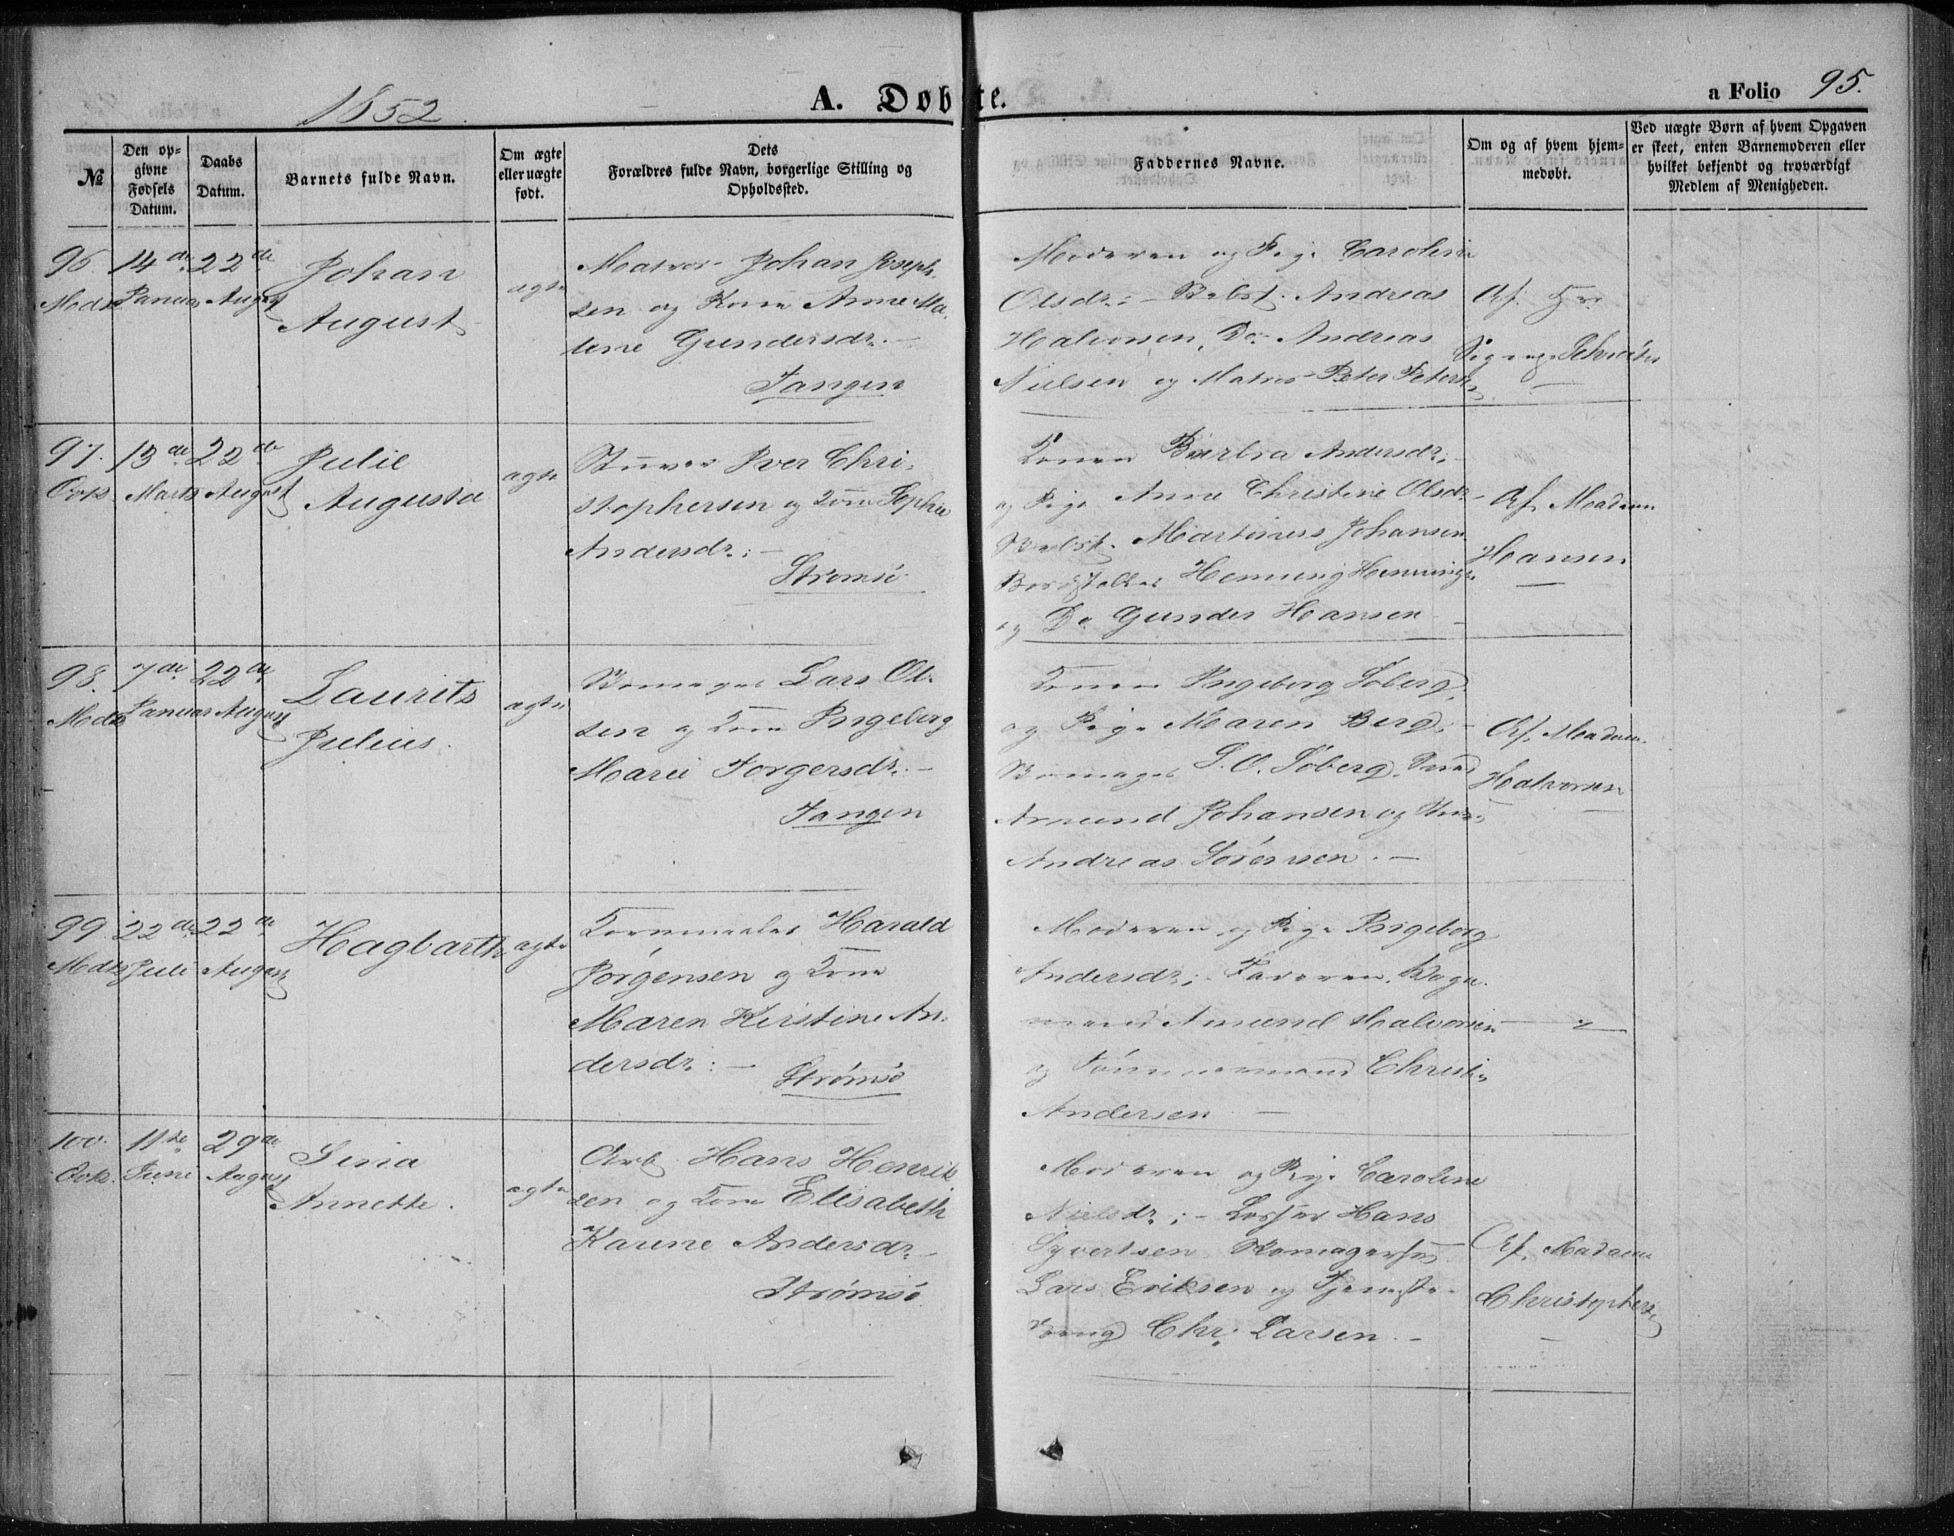 1852.
A. Døbte.
a Folio 95.
№
Den op-
givne
Fødsels
Datum.
Daabs
Datum.
Barnets fulde Navn.
Om ægte
eller uægte
født.
Dets
Forældres fulde Navn, borgerlige Stilling og
Opholdssted.
Faddernes Navne.
Om og af hvem hjem-
medøbt.
Ved uægte Børn af hvem Opgaven
er skeet, enten Barnemoderen eller
hvilket bekjendt og troværdigt
Medlem af Menigheden.
96.
14de
Januar
22de
August
Johan
August
ægte
Matros Johan Joseph-
sen og Kone Anne Ma-
lene Gundersdr. –
Tangen
Moderen og Pige Caroline
Olsdr: – Andreas
Halvorsen, Do Andreas
Nielsen og Matros Peter Peters
Af
97.
13de
Marts
22de
August
Julie
Augusta
ægte
Stuver Iver Chri-
stophersen og Kone Sophie
Andersdr: –
Strømsø
Konen Barbra Andersdr:
og Pige Anne Christine Olsdr
Martinus Johansen
Henning Henningsen
og Do Gunder Hansen
Af Madam
Hansen
98.
7de
Januar
22de
August
Laurits
Julius.
ægte
Lars Ol-
sen og Kone Ingeborg
Marie Torgersdr: –
Tangen
Konen Ingeborg Soberg,
og Pige Maren Berg, –
L. O. Soberg,
Amund Johansen og
Andreas Sørensen. –
Af Madam
Halvorsen
99.
22de
Juli
22de
August
Hagbarth
ægte
Harald
Jørgensen og Kone
Maren Kirstine An-
dersdr: –
Strømsø
Moderen og Pige Ingeborg
Andersdr; – Faderen, Vogn-
mand Amund Halvorsen
og Tømmermand Christ:
Andersen –
100.
11te
Juni
29de
August
Lina
Annette.
ægte
Arb. Hans Henrik
sen og Kone Elisabeth
Karine Andersdr.
Strømsø.
Moderen og Pige Caroline
Nielsdr; – Hans
Syvertsen
Lars Eriksen og Tjeneste-
dreng Chr: Larsen. –
Af Madam
Christophers